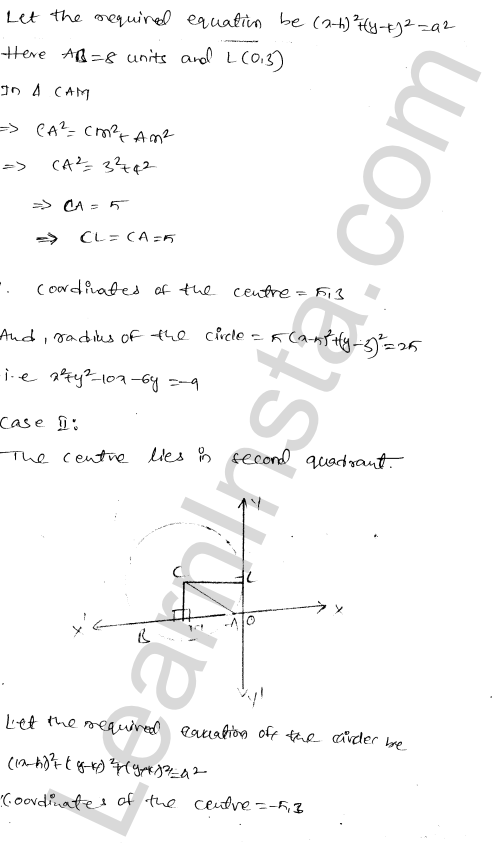 Let the required equation be (x-h)²+(y-k)²=a²
Here AB=8 units and L(0,3)
In Δ CAM
=> CA²=CM²+AM²
=> CA²=3²+4²
=> CA=5
=> CL=CA=5
Coordinates of the centre=5,3
And, radius of the circle=5(x-5)²+(y-3)²=25
i.e x²+y²-10x-6y=-9
Case II:
The centre lies in second quadrant.
Y
C
L
X'
B
M
A
O
X
Y'
Let the required equation of the circle be
(x-h)²+(y-k)²+(y-k)²=a²
Coordinates of the centre=-5,3
LearnInsta.com